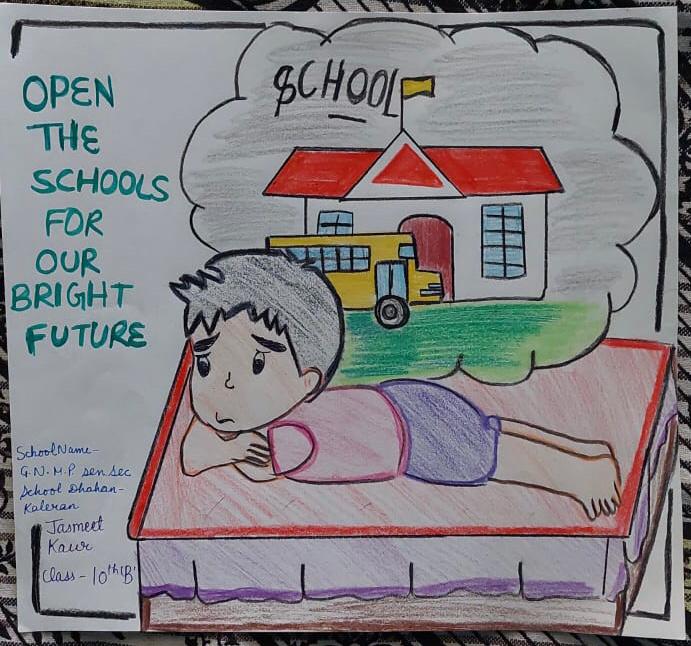 OPEN
THE
SCHOOLS
FOR
OUR
BRIGHT
FUTURE
SCHOOL
School Name-
G.N.M.P. Sen Sec
School Dhahan-
Kaleran
Jasmeet
Kaur
Class - 10th 'B'